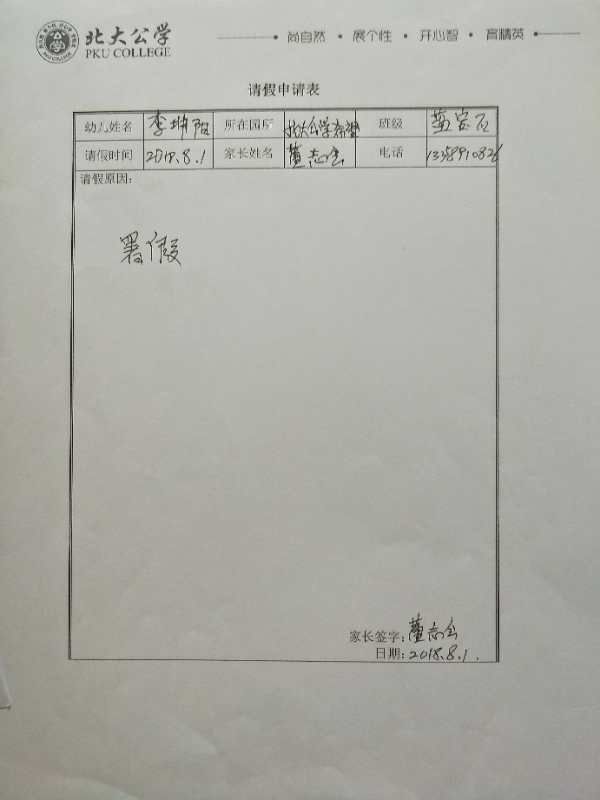 北大公学
PKU COLLEGE
尚自然 • 展个性 • 开心智 • 育精英
请假申请表
幼儿姓名 李坤阳 所在园所 北大公学 班级 蓝宝石
请假时间 2018.8.1 家长姓名 董志会 电话
请假原因:
署假
家长签字: 董志会
日期: 2018.8.1.